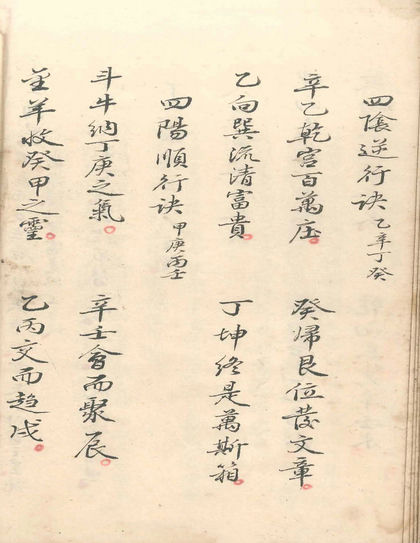 四陰逆行訣 乙辛丁癸
辛乙乾宮百萬庄 癸歸艮位發文章
乙向巽流清富貴 丁坤終是萬斯箱
四陽順行訣 甲庚丙壬
斗牛納丁庚之氣 辛壬會而聚辰
金羊收癸甲之靈 乙丙交而趨戌